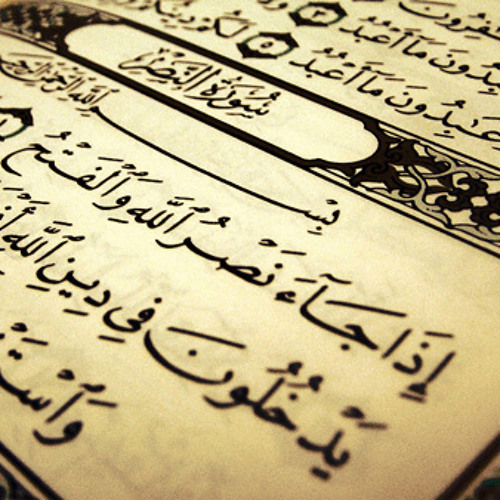 عَـٰبِدُونَ مَآ أَعْبُدُ ۝٣
عَـٰبِدُونَ مَآ أَعْبُدُ ۝٥ لَكُمْ دِينُكُمْ
سُورَةُ النَّصْرِ
بِسْمِ اللَّهِ الرَّحْمَـٰنِ الرَّحِيمِ
إِذَا جَآءَ نَصْرُ ٱللَّهِ وَٱلْفَتْحُ ۝١
يَدْخُلُونَ فِي دِينِ ٱللَّهِ